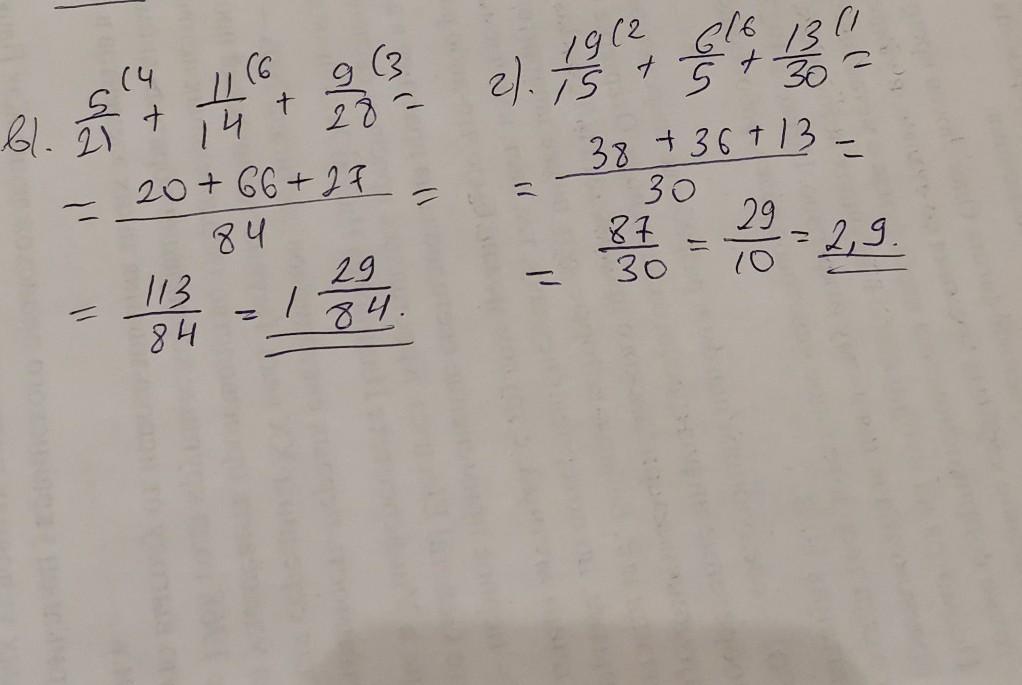 в). 5/21 (4 + 11/14 (6 + 9/28 (3 =
= 20 + 66 + 27 / 84 =
= 113/84 = 1 29/84.
г). 19/15 (2 + 6/5 (6 + 13/30 (1 =
= 38 + 36 + 13 / 30 =
= 87/30 = 29/10 = 2,9.